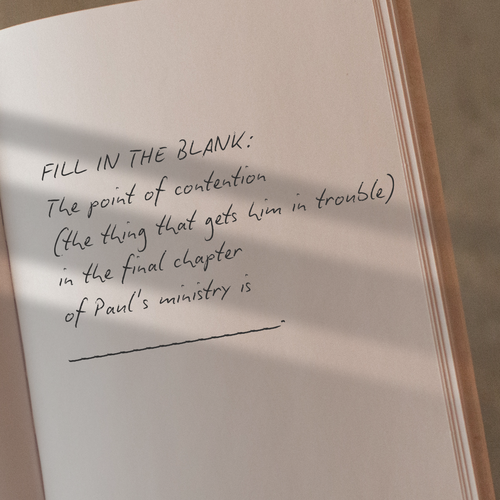 FILL IN THE BLANK:
The point of contention
(the thing that gets him in trouble)
in the final chapter
of Paul's ministry is